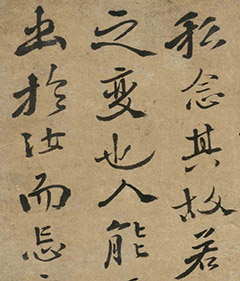 私念其故若
之变也人能
出於汝而忘